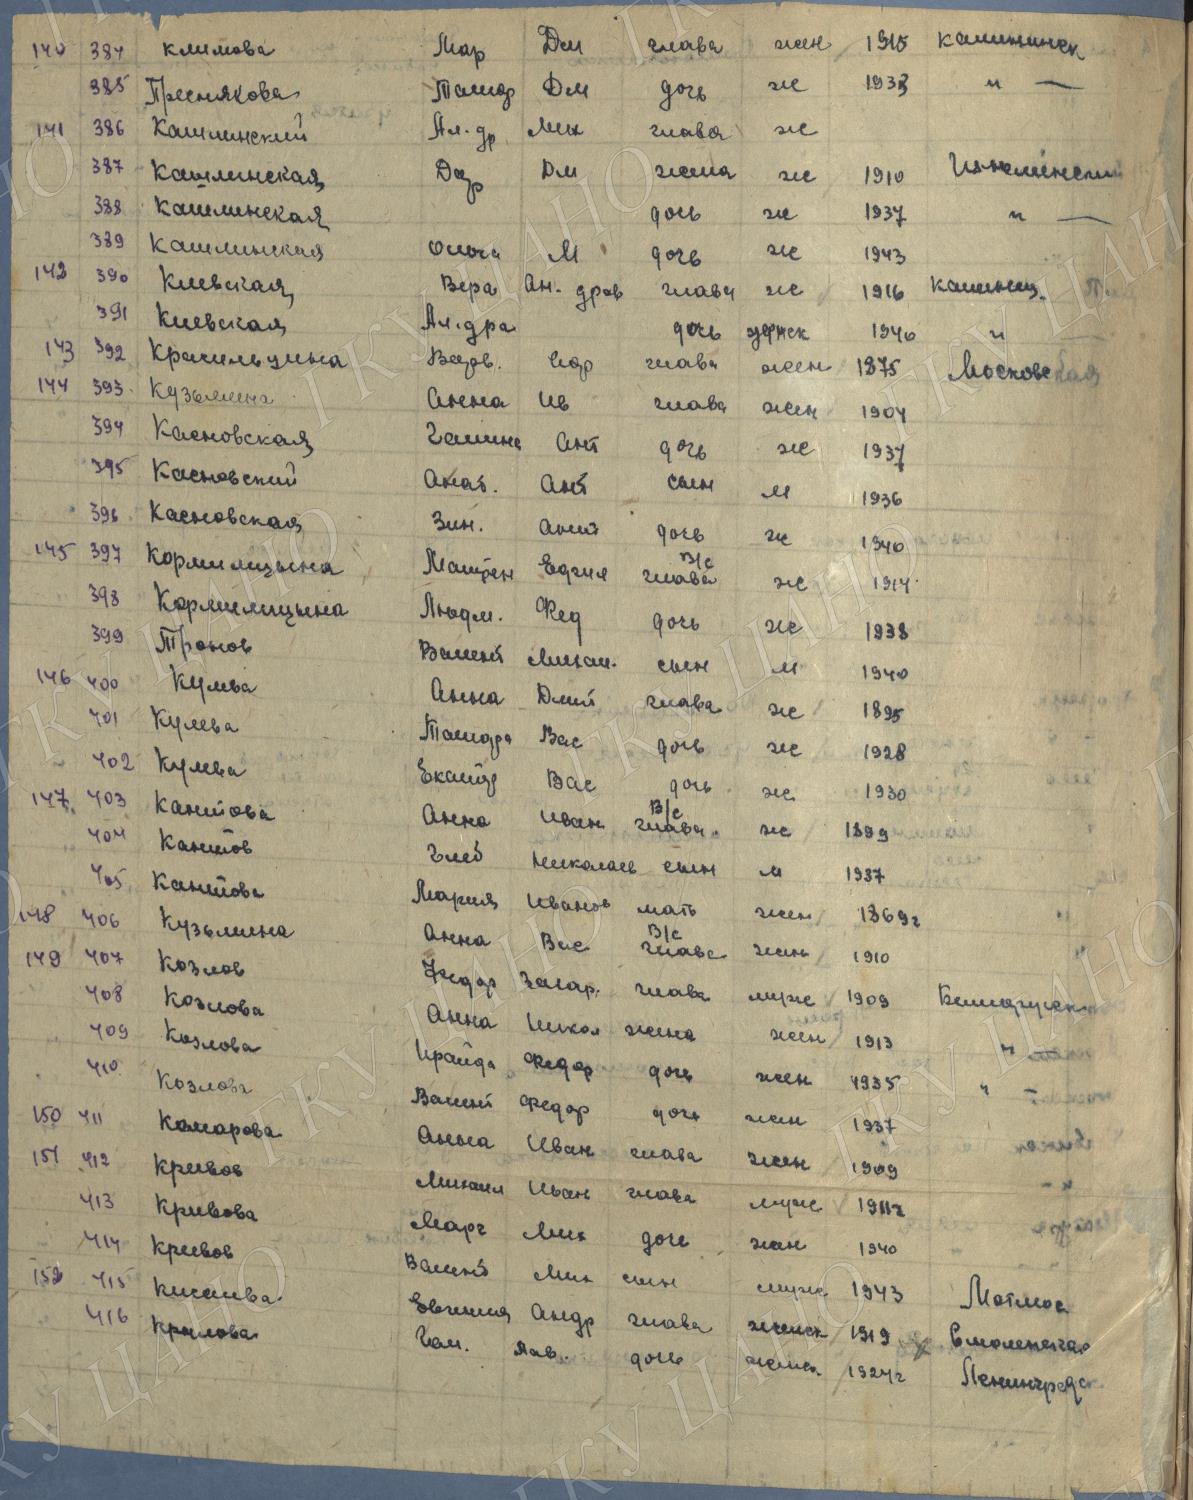 140 384 Климова Мар Дм глава жен 1915 Калининск
385 Преснякова Тамар Дм дочь ж 1938 " —
141 386 Кашлинский Ал.др Мих глава ж
387 Кашлинская Дар Дм жена ж 1910
388 Кашлинская дочь ж 1937 " —
389 Кашлинская Ольга М дочь ж 1943
142 390 Киевская Вера Ал. дров глава ж 1916
391 Киевская Ал.дра дочь женск 1940 "
143 392 Красильщина Варв. Егор глава жен 1875 Московская
144 393 Кузьмина Анна Ив глава жен 1904
394 Касновская Галина Ант дочь ж 1937
395 Касновский Анат. Ант сын м 1936
396 Касновская Зин. Ант дочь ж 1940
145 397 Кормилицына Евгия В/с глава ж 1914
398 Кормилицына Людм. Фед дочь ж 1938
399 Тронов Валент Михаи. сын м 1940
146 400 Кулева Анна Дмит глава ж 1895
401 Кулева Тамара Вас дочь ж 1928
402 Кулева Екатер Вас дочь ж 1930
147 403 Канатова Анна Иван В/с глава ж 1899
404 Канатов Глеб Николаев сын м 1937
405 Канатова Мария Иванов мать жен 1869г
148 406 Кузьмина Анна Вас В/с глава жен 1910
149 407 Козлов Федор Захар. глава муж 1909
408 Козлова Анна Никол жена жен 1913 " —
409 Козлова Ираида Федор дочь жен 1935 " —
410 Козлова Валент Федор дочь жен 1937
150 411 Комарова Анна Иван глава жен 1909
151 412 Кривов Михаил Иван глава муж 1911г
413 Кривова Марг Мих дочь жен 1940
414 Кривов Валент Мих сын муж 1943
152 415 Киселева Евгения Андр глава женск 1919 Смоленская
416 Крылова Гал. Пав. дочь женск 1924г Ленинградс